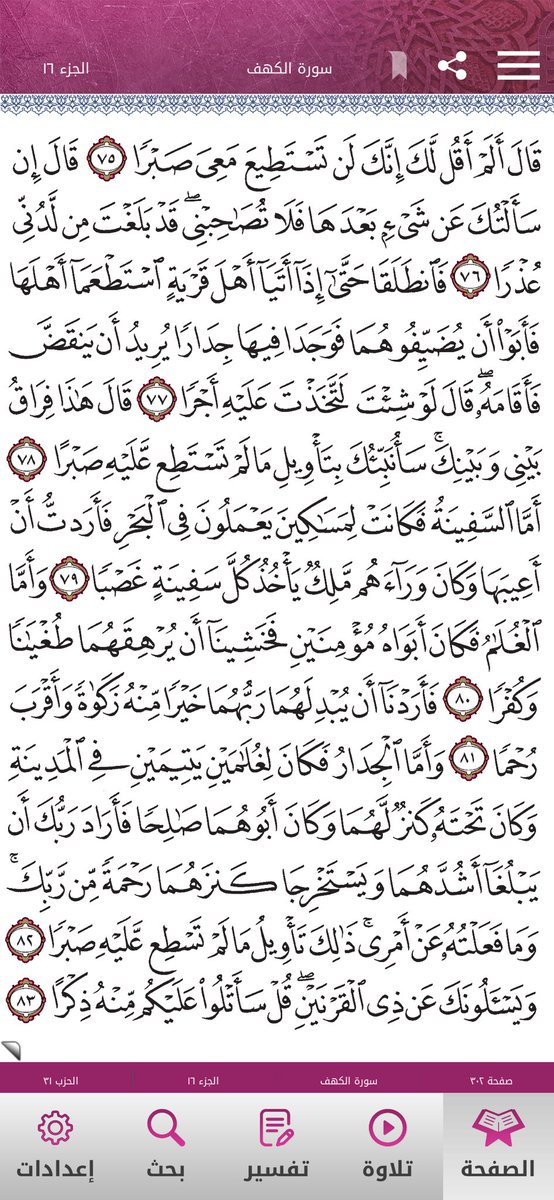 سورة الكهف الجزء ١٦
قَالَ أَلَمْ أَقُل لَّكَ إِنَّكَ لَن تَسْتَطِيعَ مَعِىَ صَبْرًا ٧٥ قَالَ إِن
سَأَلْتُكَ عَن شَىْءٍۭ بَعْدَهَا فَلَا تُصَٰحِبْنِى ۖ قَدْ بَلَغْتَ مِن لَّدُنِّى
عُذْرًا ٧٦ فَٱنطَلَقَا حَتَّىٰٓ إِذَآ أَتَيَآ أَهْلَ قَرْيَةٍ ٱسْتَطْعَمَآ أَهْلَهَا
فَأَبَوْا۟ أَن يُضَيِّفُوهُمَا فَوَجَدَا فِيهَا جِدَارًا يُرِيدُ أَن يَنقَضَّ
فَأَقَامَهُۥ ۖ قَالَ لَوْ شِئْتَ لَتَّخَذْتَ عَلَيْهِ أَجْرًا ٧٧ قَالَ هَٰذَا فِرَاقُ
بَيْنِى وَبَيْنِكَ ۚ سَأُنَبِّئُكَ بِتَأْوِيلِ مَا لَمْ تَسْتَطِع عَّلَيْهِ صَبْرًا ٧٨
أَمَّا ٱلسَّفِينَةُ فَكَانَتْ لِمَسَٰكِينَ يَعْمَلُونَ فِى ٱلْبَحْرِ فَأَرَدتُّ أَنْ
أَعِيبَهَا وَكَانَ وَرَآءَهُم مَّلِكٌ يَأْخُذُ كُلَّ سَفِينَةٍ غَصْبًا ٧٩ وَأَمَّا
ٱلْغُلَٰمُ فَكَانَ أَبَوَاهُ مُؤْمِنَيْنِ فَخَشِينَآ أَن يُرْهِقَهُمَا طُغْيَٰنًا
وَكُفْرًا ٨٠ فَأَرَدْنَآ أَن يُبْدِلَهُمَا رَبُّهُمَا خَيْرًا مِّنْهُ زَكَوٰةً وَأَقْرَبَ
رُحْمًا ٨١ وَأَمَّا ٱلْجِدَارُ فَكَانَ لِغُلَٰمَيْنِ يَتِيمَيْنِ فِى ٱلْمَدِينَةِ
وَكَانَ تَحْتَهُۥ كَنزٌ لَّهُمَا وَكَانَ أَبُوهُمَا صَٰلِحًا فَأَرَادَ رَبُّكَ أَن
يَبْلُغَآ أَشُدَّهُمَا وَيَسْتَخْرِجَا كَنزَهُمَا رَحْمَةً مِّن رَّبِّكَ ۚ
وَمَا فَعَلْتُهُۥ عَنْ أَمْرِى ۚ ذَٰلِكَ تَأْوِيلُ مَا لَمْ تَسْطِع عَّلَيْهِ صَبْرًا ٨٢
وَيَسْـَٔلُونَكَ عَن ذِى ٱلْقَرْنَيْنِ ۖ قُلْ سَأَتْلُوا۟ عَلَيْكُم مِّنْهُ ذِكْرًا ٨٣
صفحة ٣٠٢ سورة الكهف الجزء ١٦ الحزب ٣١
الصفحة تلاوة تفسير بحث إعدادات